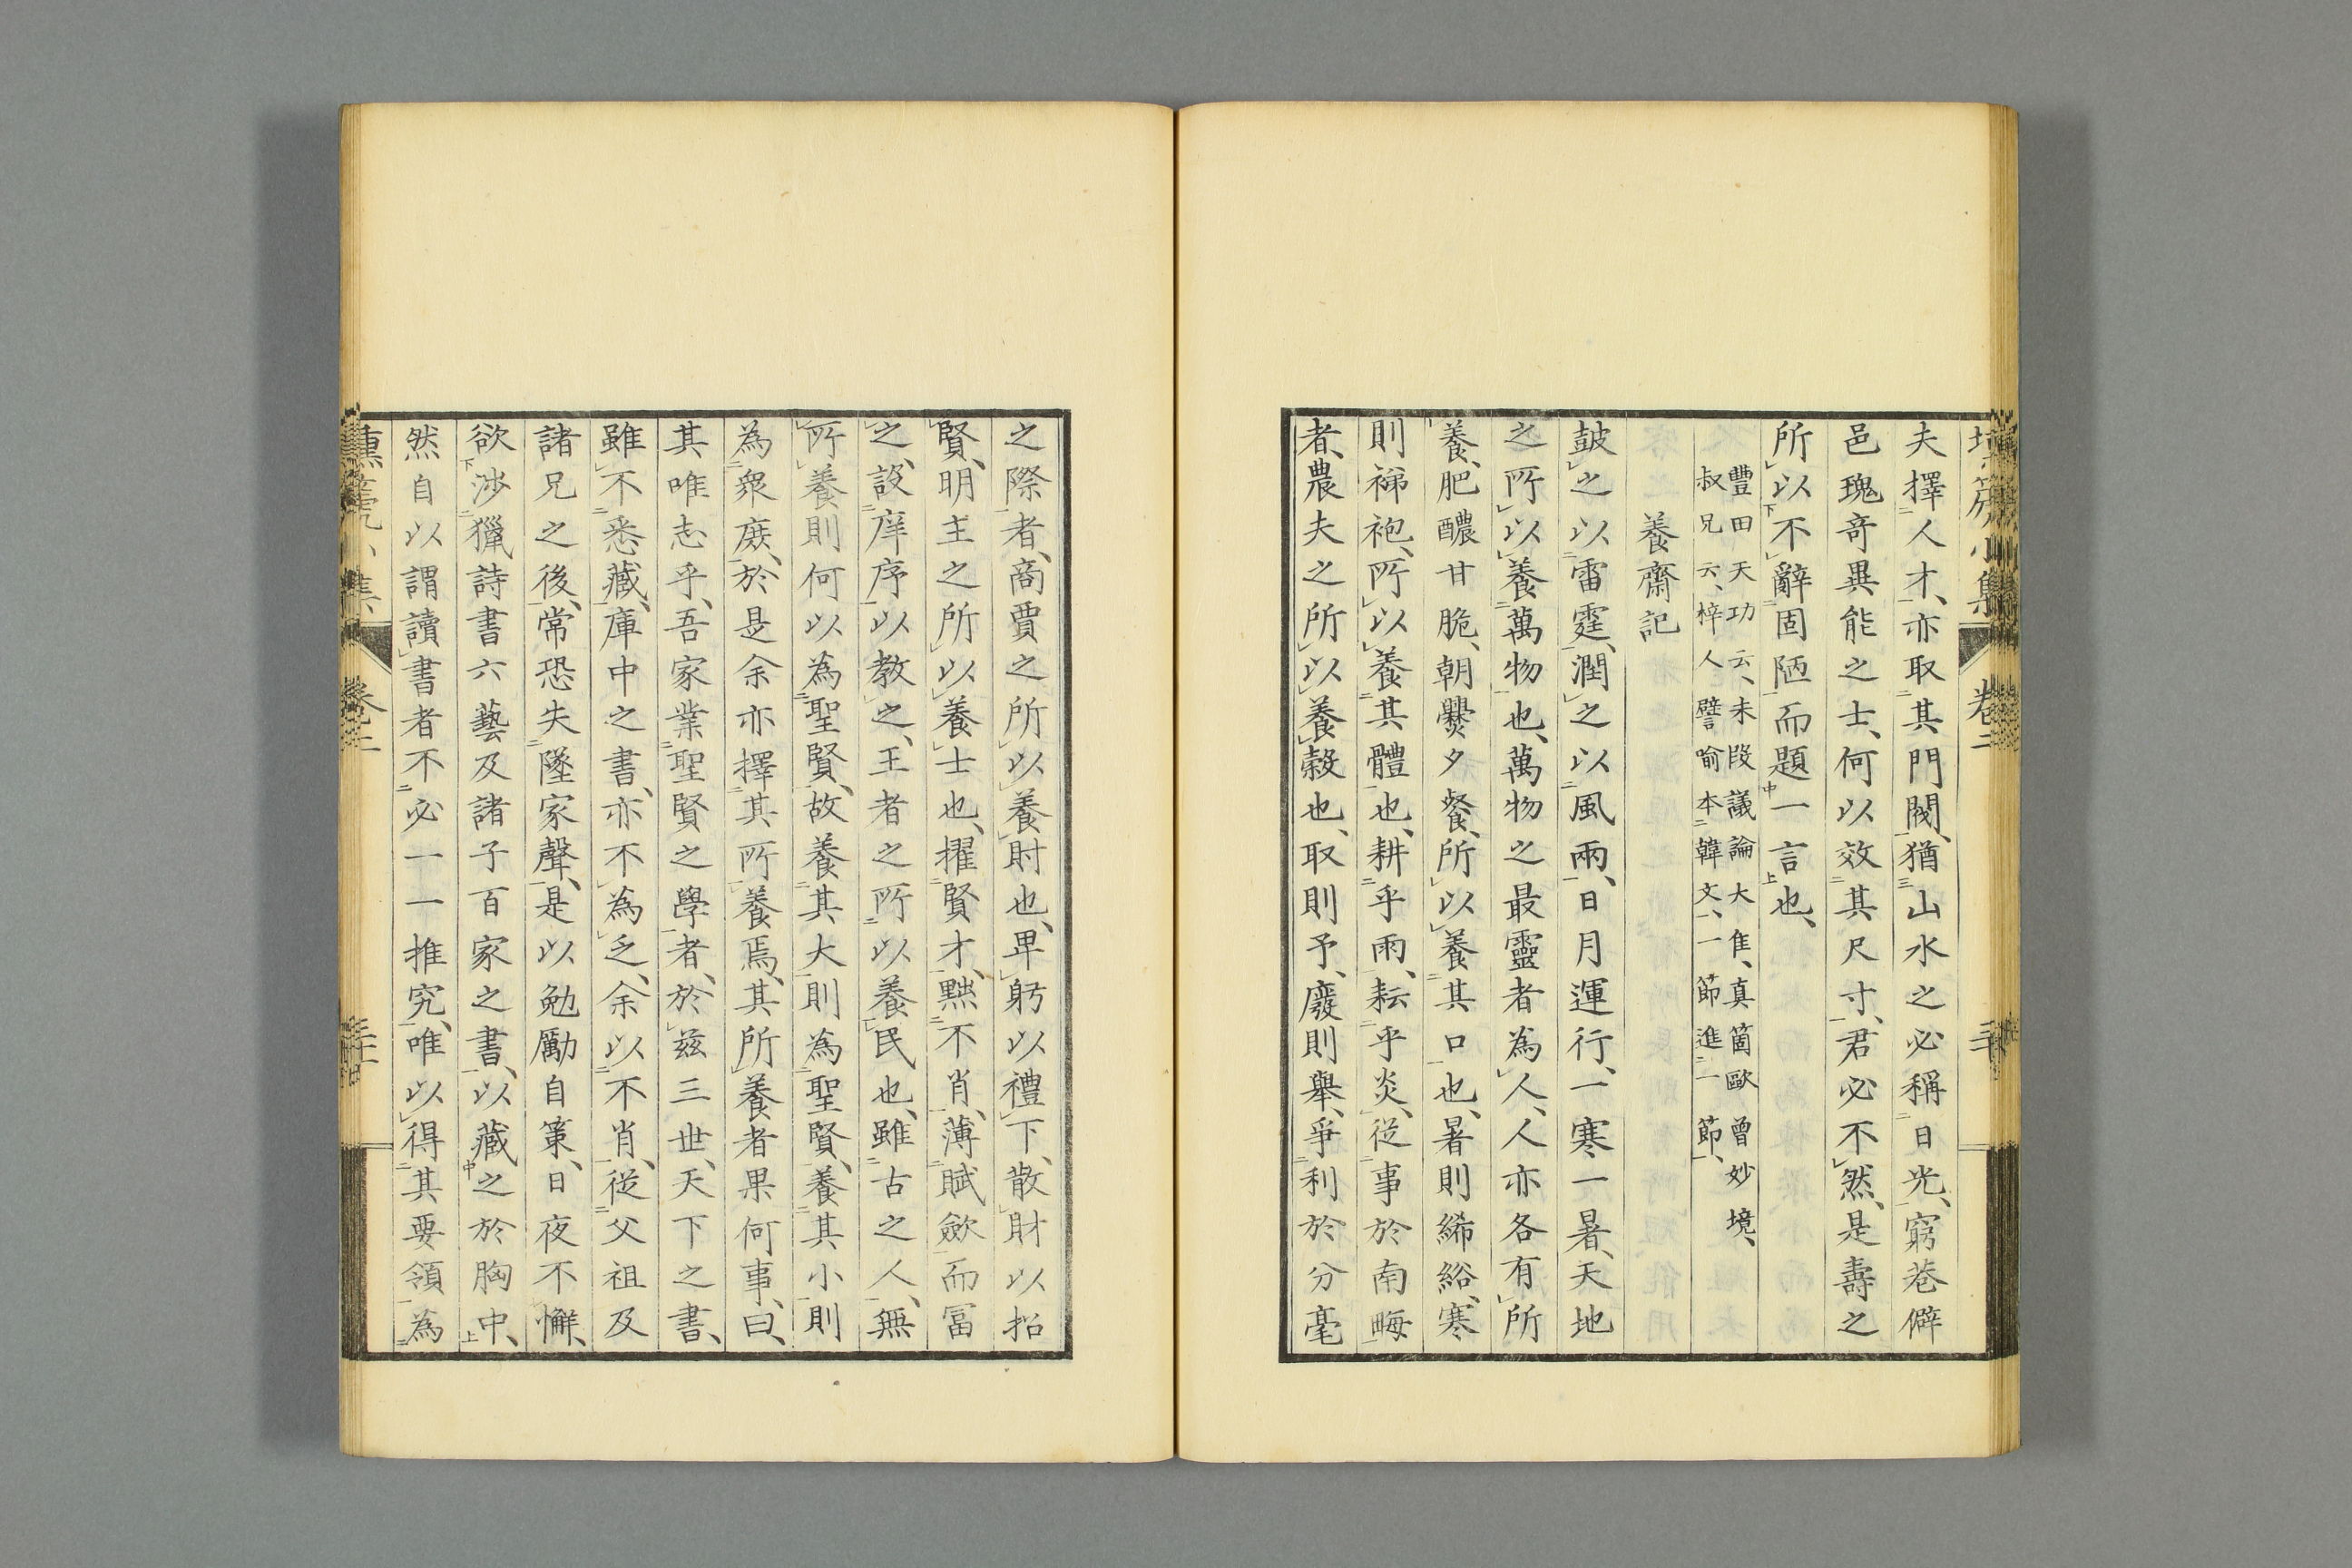 夫擇人才、亦取其門閥、猶山水之必稱日光、窮巷僻
邑瑰奇異能之士、何以效其尺寸、君必不然、是壽之
所以不辭固陋而題一言也、
豐田天功云、末段議論大佳、真箇歐曾妙境、
叔兄云、梓人譬喻本韓文、一節進一節、
養齋記
皷之以雷霆、潤之以風雨、日月運行、一寒一暑、天地
之所以養萬物也、萬物之最靈者為人、人亦各有所
養、肥醲甘脆、朝爨夕餐、所以養其口也、暑則絺綌、寒
則褅袍、所以養其體也、耕乎雨、耘乎炎、從事於南畮
者、農夫之所以養穀也、取則予、廢則舉、爭利於分毫
之際者、商賈之所以養財也、卑躬以禮下、散財以招
賢、明主之所以養士也、擢賢才、黜不肖、薄賦斂而富
之、設庠序以教之、王者之所以養民也、雖古之人、無
所養則何以為聖賢、故養其大則為聖賢、養其小則
為眾庶、於是余亦擇其所養焉、其所養者果何事、曰、
其唯志乎、吾家業聖賢之學者、於茲三世、天下之書、
雖不悉藏、庫中之書、亦不為乏、余以不肖、從父祖及
諸兄之後、常恐失墜家聲、是以勉勵自策、日夜不懈、
欲涉獵詩書六藝及諸子百家之書、以藏之於胸中、
然自以謂讀書者不必一一推究、唯以得其要領為
卷二